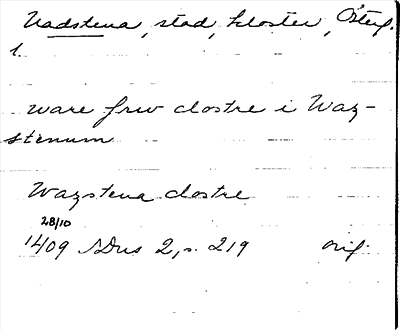 Vadstena, stad, kloster, Österg.
1.
ware frw clostre i Waz-
stenum
Wazstena clostre
28/10
1409 SDns 2, s. 219 orig.